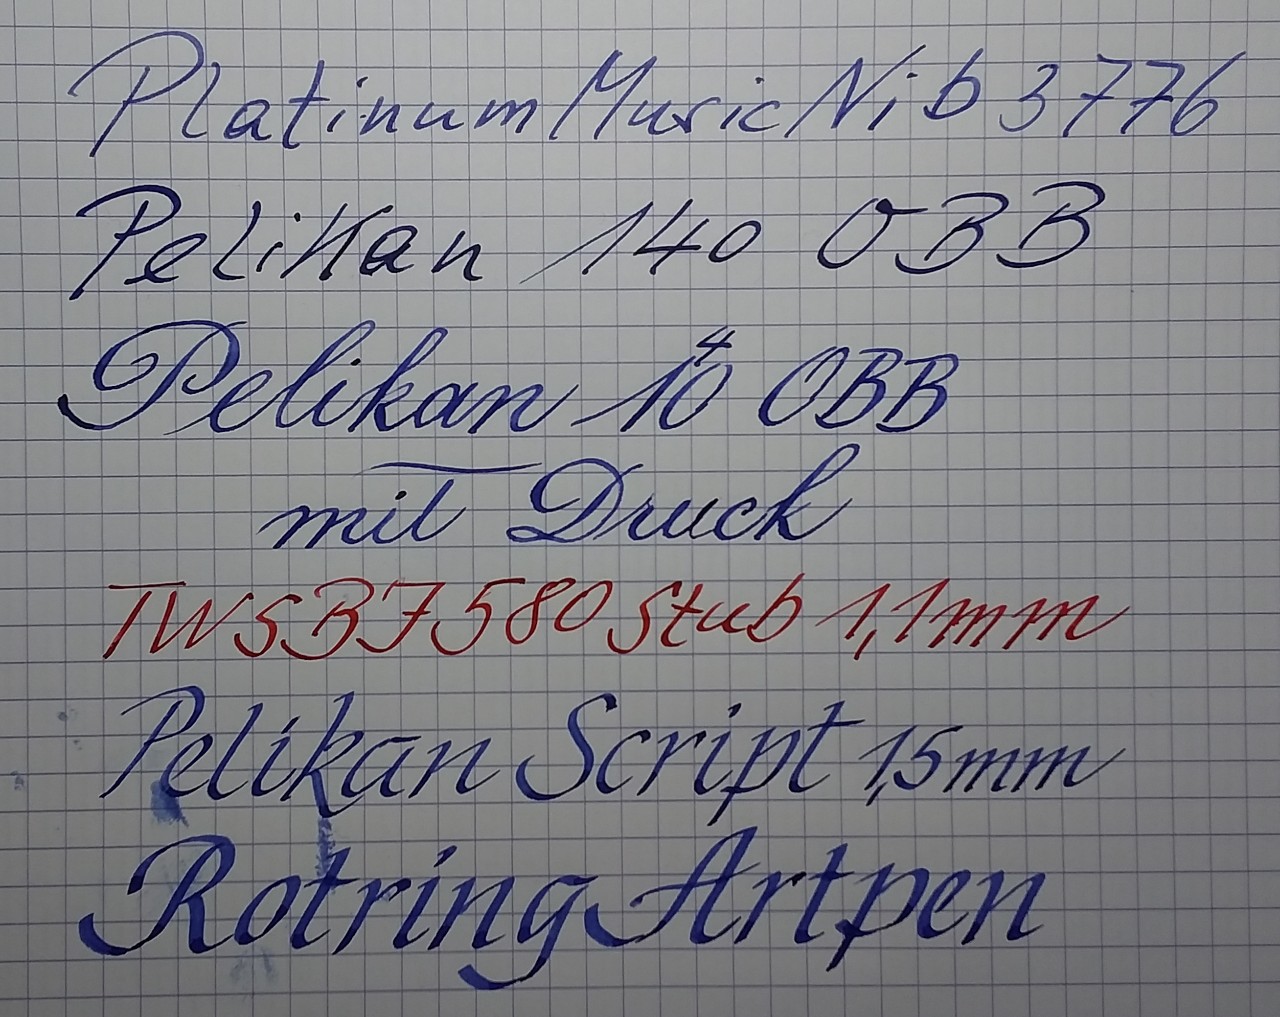 Platinum Music Nib 3776
Pelikan 140 OBB
Pelikan 140 OBB
mit Druck
TWSBI 580 Stub 1,1mm
Pelikan Script 1,5mm
Rotring Artpen